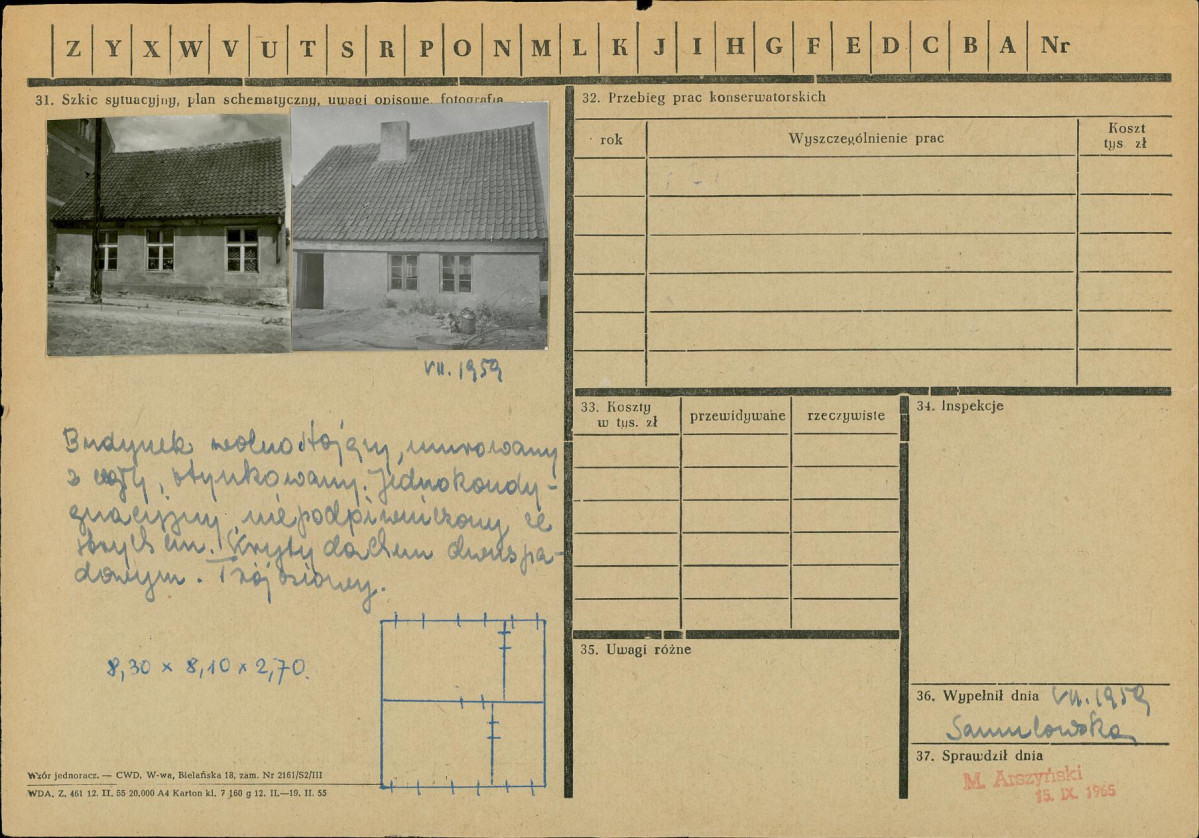 Z Y X W V U T S R P O N M L K J I H G F E D C B A Nr
31. Szkic sytuacyjny, plan schematyczny, uwagi opisowe, fotografia
VII. 1959
Budynek wolnostojący, murowany
z cegły, otynkowany. Jednokondy-
gnacyjny, niepodpiwniczony, ze
strychem. Kryty dachem dwuspa-
dowym. Trójosiowy.
8,30 x 8,10 x 2,70.
Wzór jednoracz. — CWD, W-wa, Bielańska 18, zam. Nr 2161/S2/III
WDA. Z. 461 12. II. 55 20.000 A4 Karton kl. 7 160 g 12. II.—19. II. 55
32. Przebieg prac konserwatorskich
rok
Wyszczególnienie prac
Koszt
tys. zł
33. Koszty
w tys. zł
przewidywane
rzeczywiste
34. Inspekcje
35. Uwagi różne
36. Wypełnił dnia VII. 1959
Samulowska
37. Sprawdził dnia
M. Arszyński
15. IX. 1965